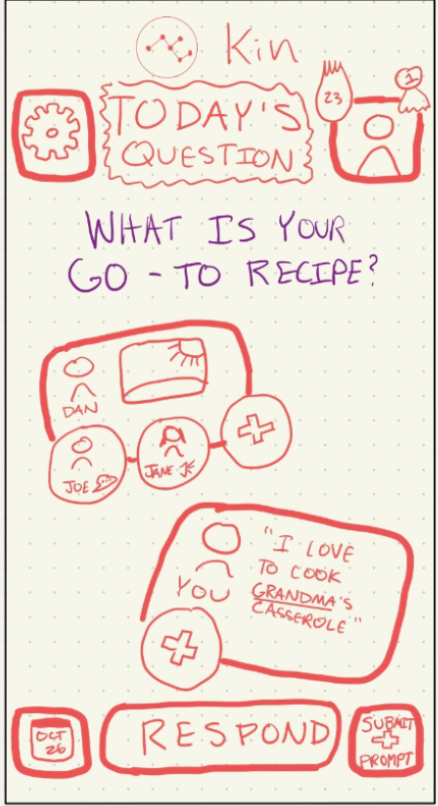 Kin
23
1
TODAY'S
QUESTION
WHAT IS YOUR
GO-TO RECIPE?
DAN
JOE
JANE JE
"I LOVE
TO COOK
GRANDMA'S
CASSEROLE"
YOU
OCT
26
RESPOND
SUBMIT
PROMPT